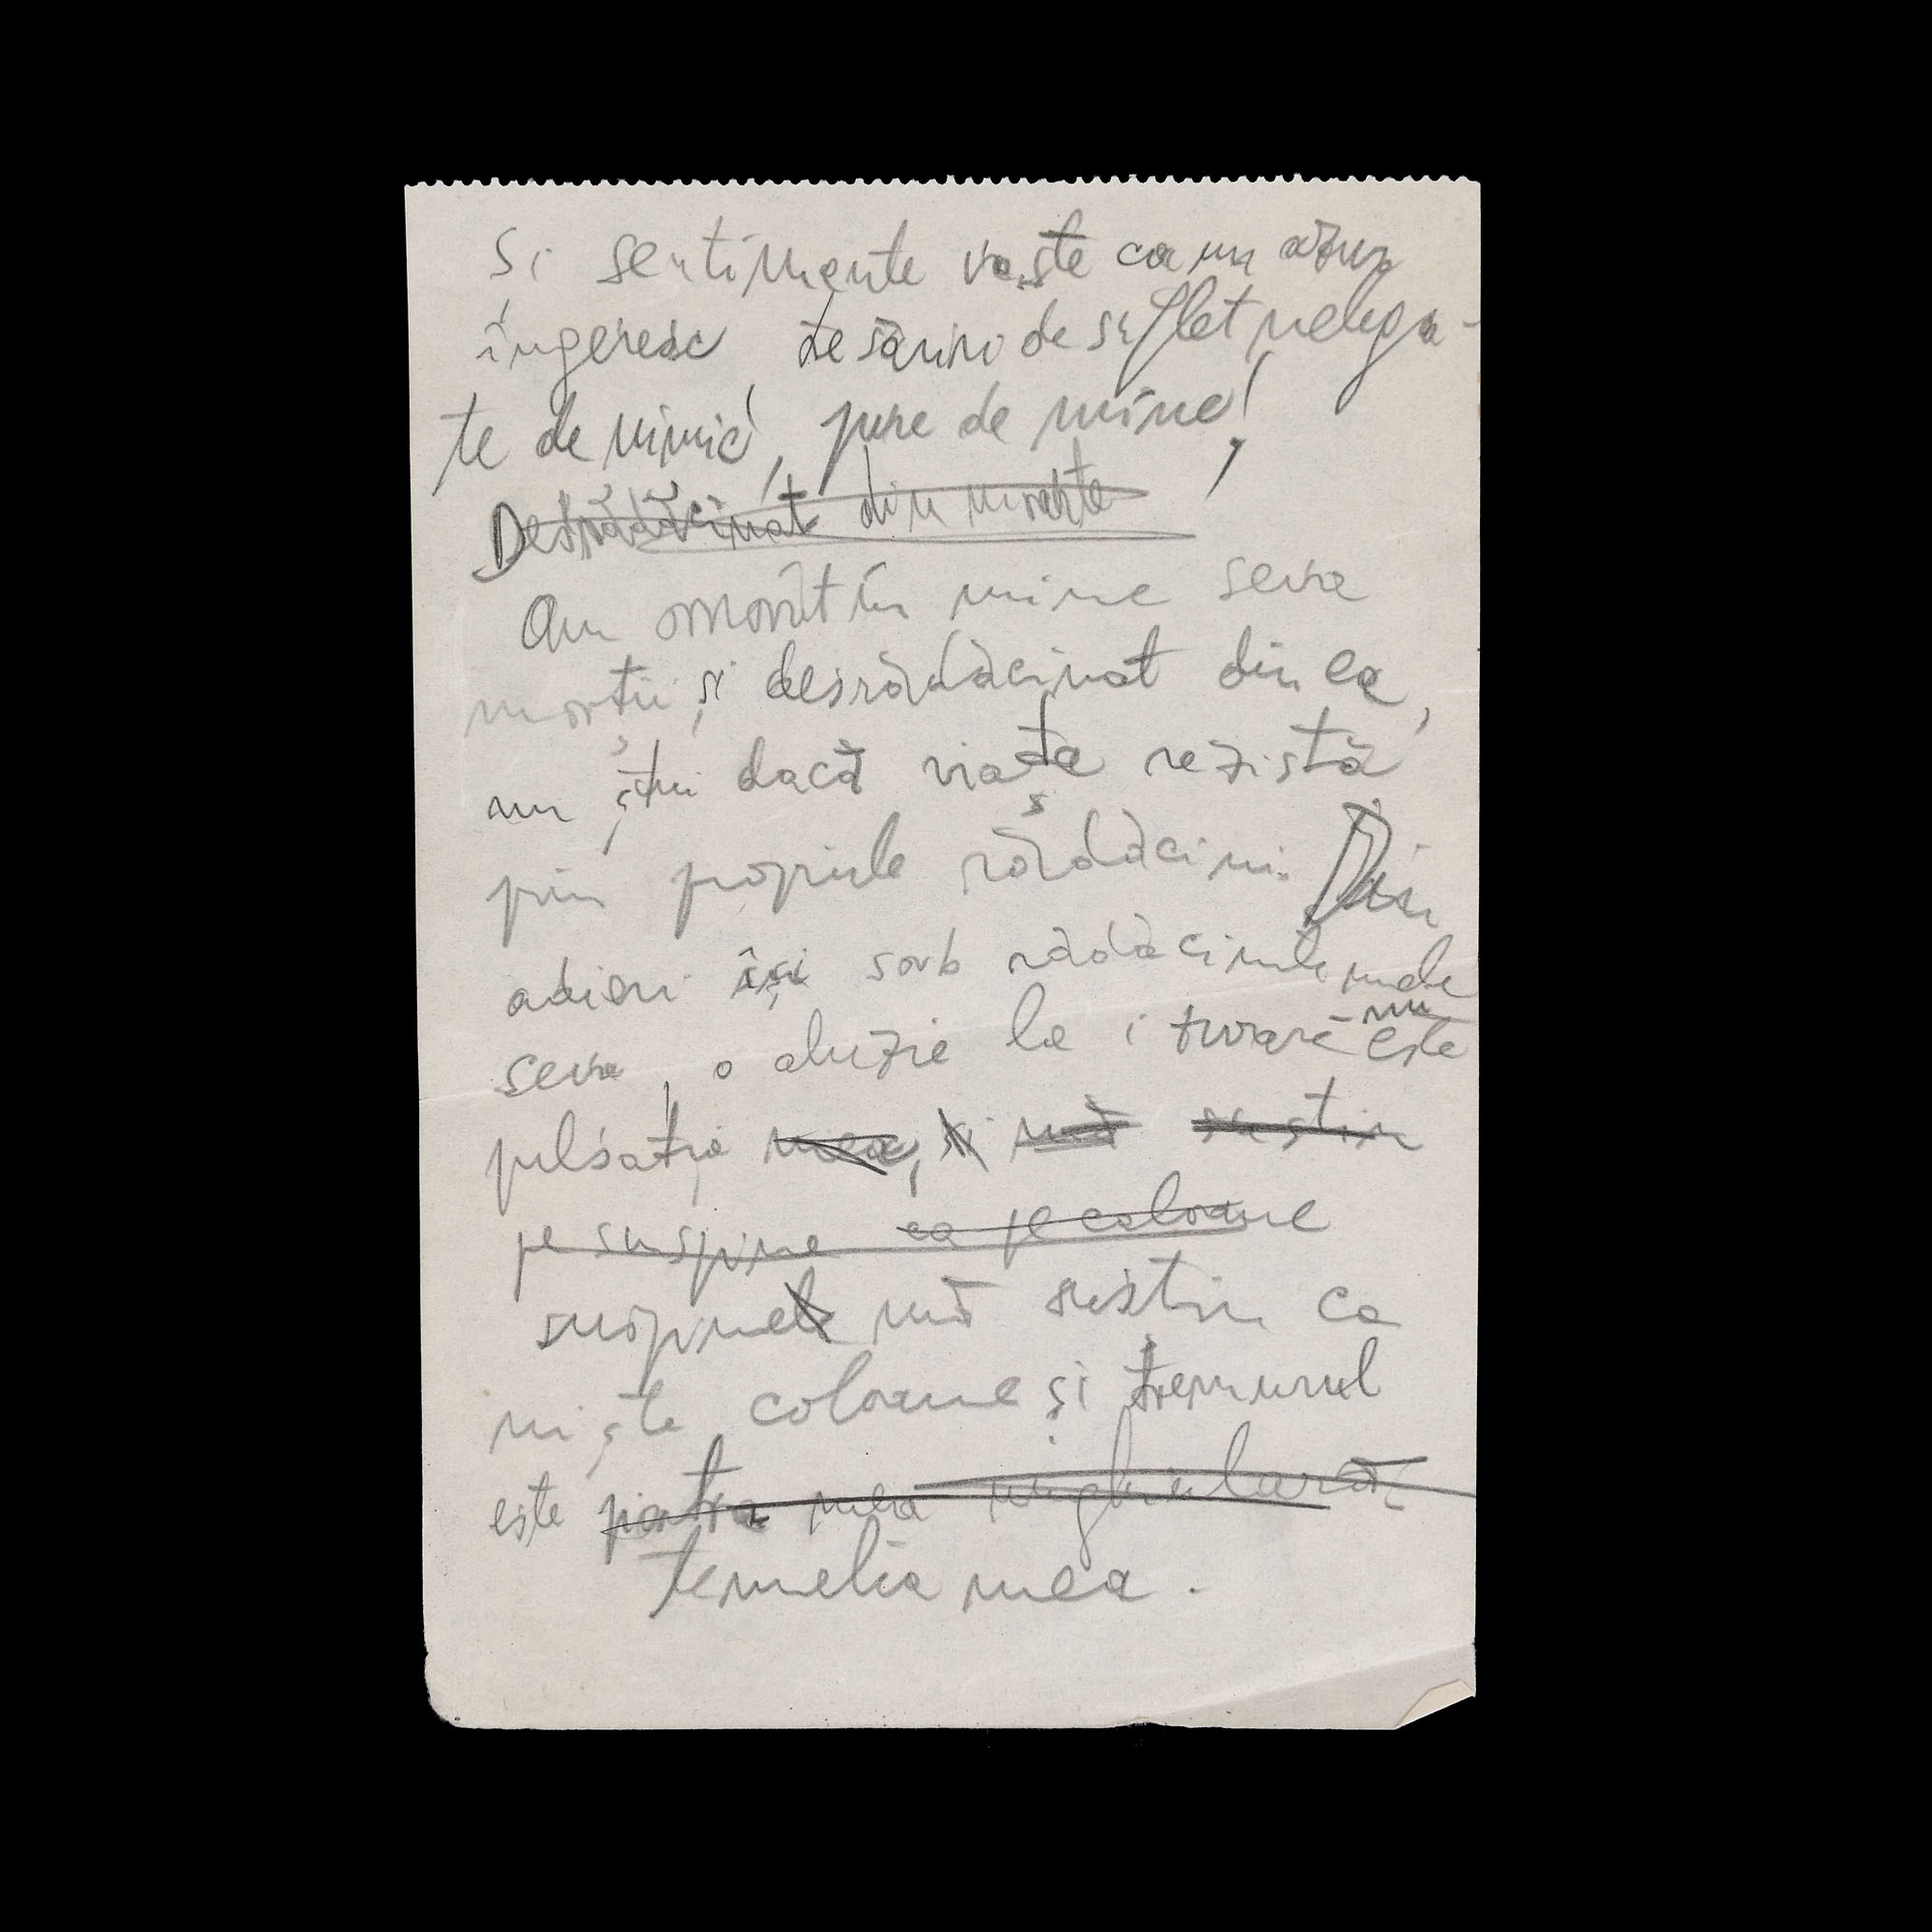 Si sentimente vaste ca un azur
îngeresc desăriri de suflet nelega-
te de nimic, pure de mine!
Desrădăcinat din moarte
Am omorît în mine seva
morții și desrădăcinat din ea,
nu știu dacă viața rezistă
prin propriile rădăcini. Din
adieri își sorb rădăcinile mele
seva, o aluzie la i tvoare nu este
pulsație mea, și mă susțin
pe suspine ca pe coloane
suspinele mă susțin ca
niște coloane și tremurul
este piatra mea unghiulară
temelia mea.